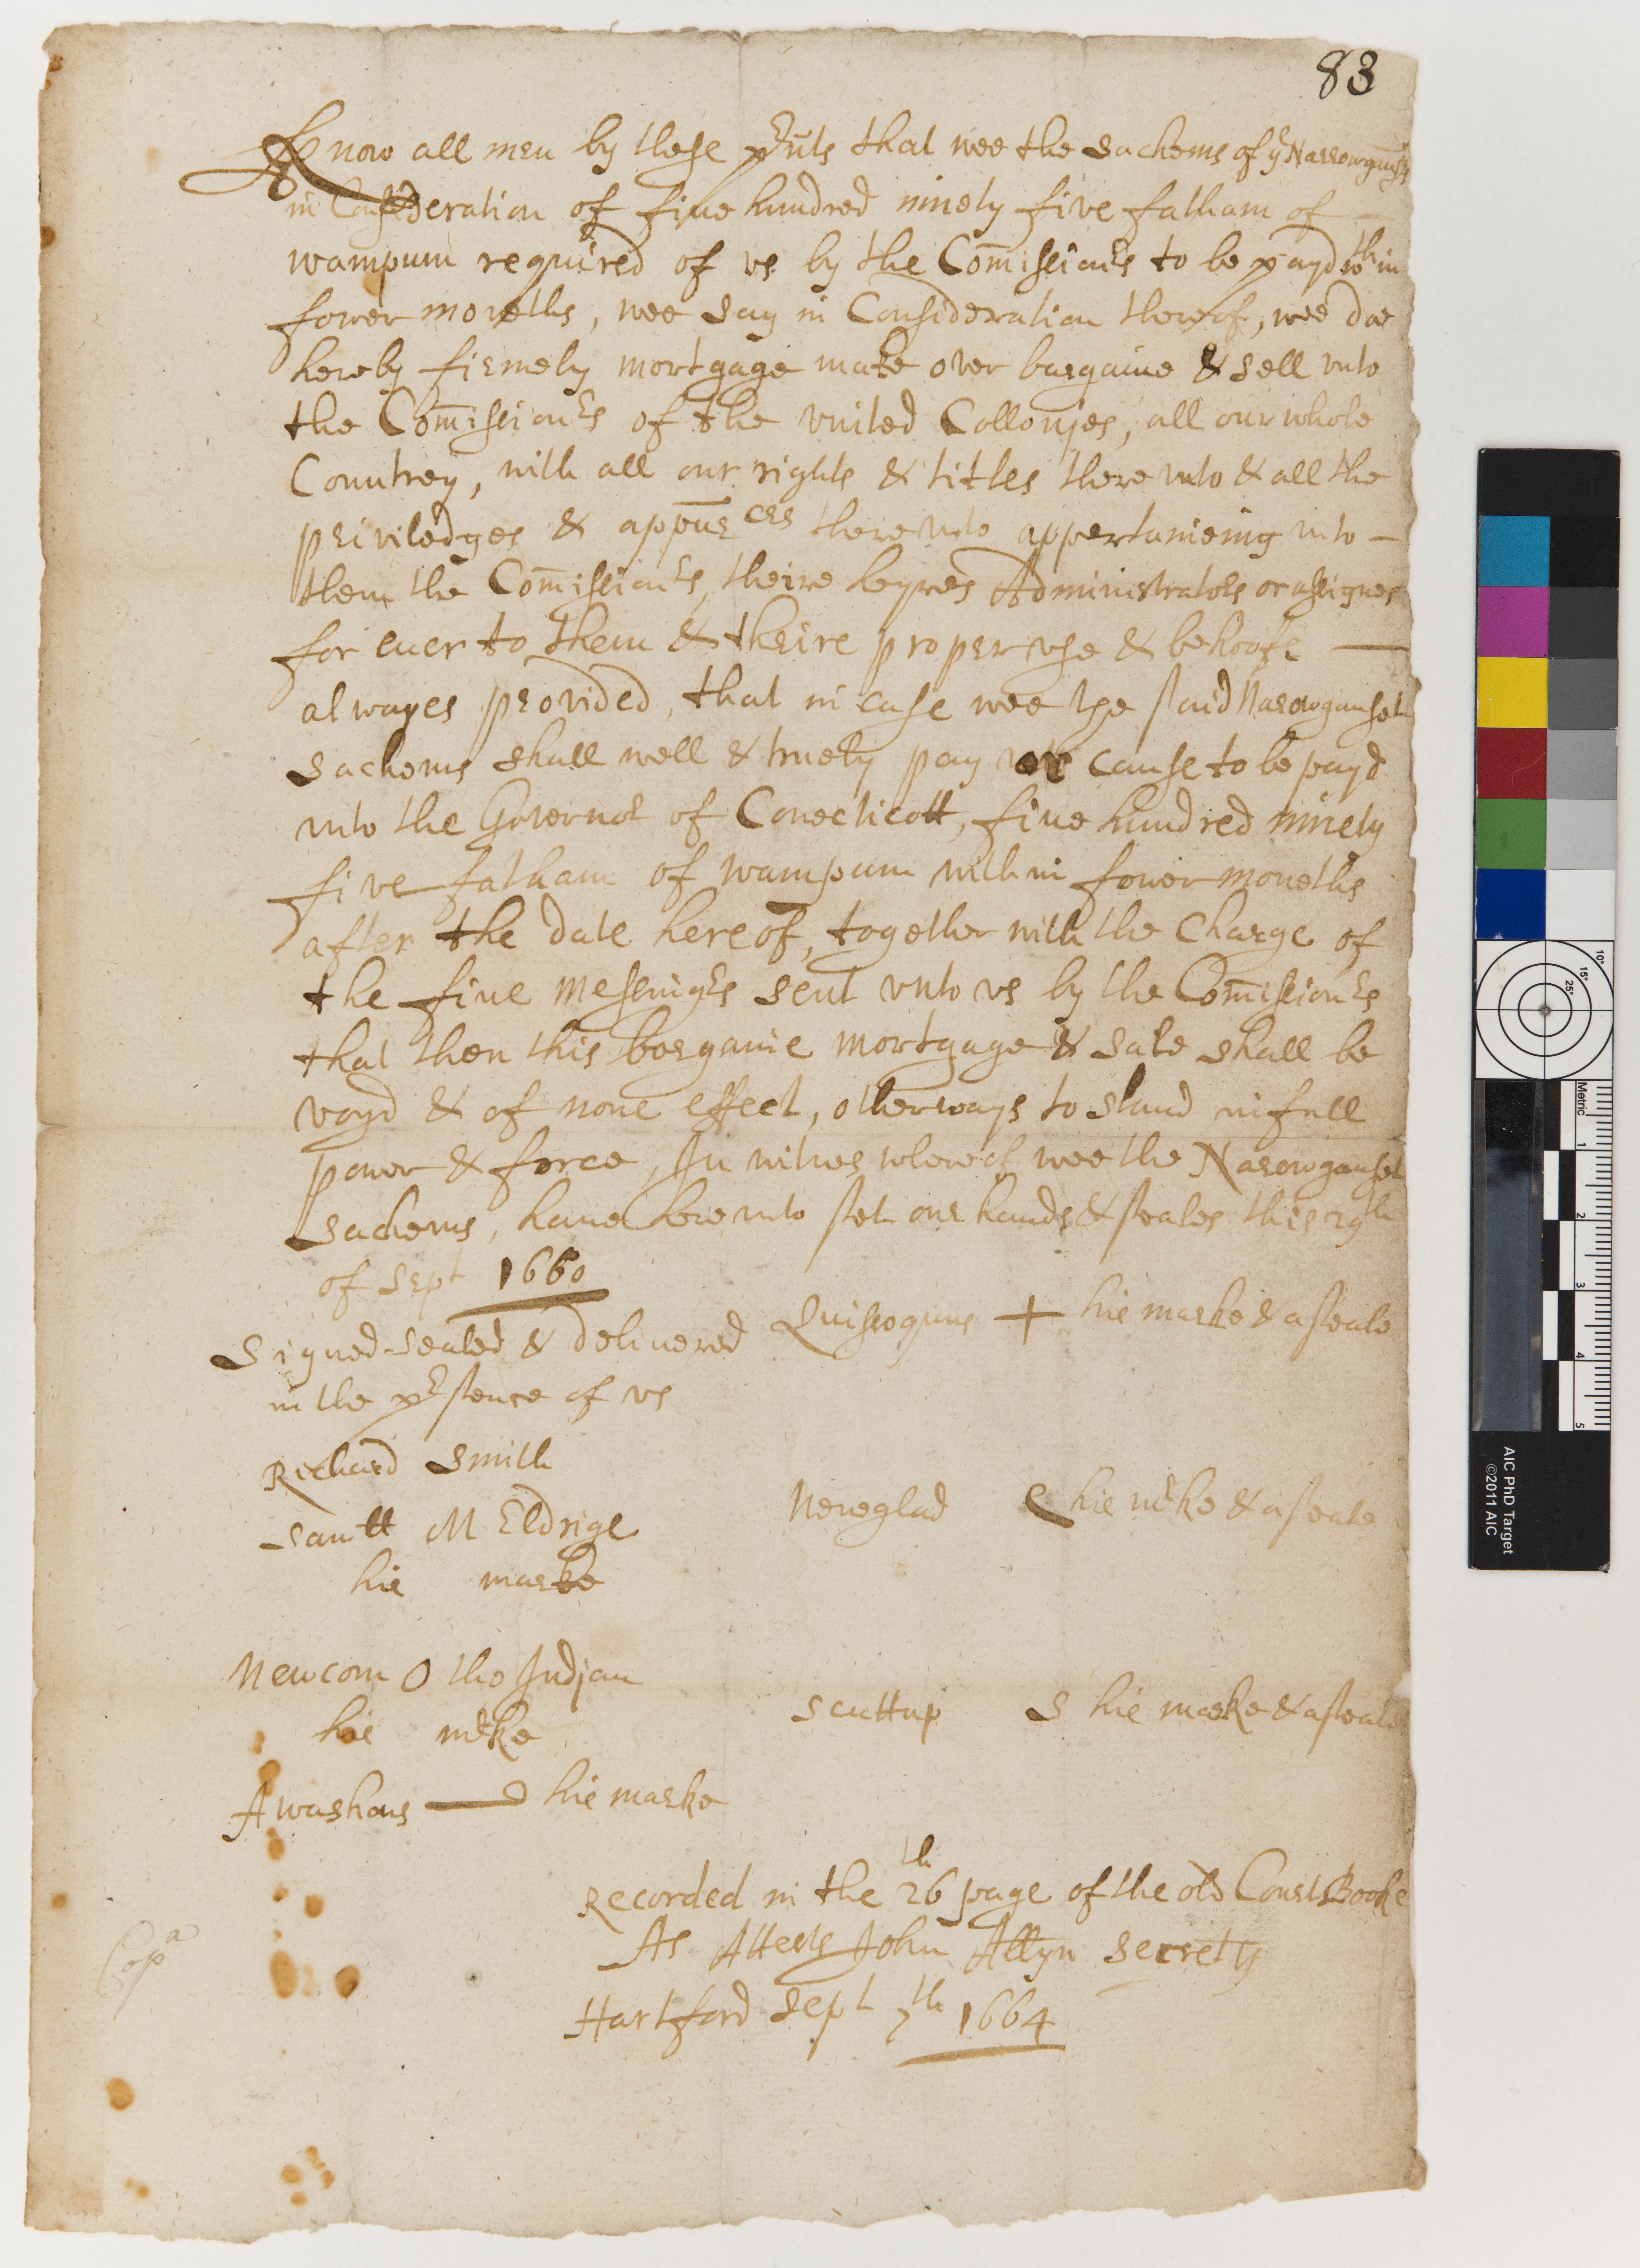 83
Know all men by these prnts that wee the Sachems of ye Narrowgansets
in Consideration of five hundred ninety five fatham of —
wampum required of vs by the Comissionrs to be payd wthin
fower moneths, wee say in Consideration thereof, wee doe
hereby firmely mortgage make over bargaine & sell vnto
the Comissionrs of the vnited Collonjes, all our whole
Countrey, with all our rights & titles there vnto & all the
priviledges & appurces there vnto appertaineing vnto —
them the Comissionrs, theire heyres Administrators or assignes
for euer to them & theire proper vse & behoofe —
alwayes provided, that in case wee the said Narowganset
Sachems shall well & truely pay or cause to be payd
vnto the Governor of Conecticott, fiue hundred ninety
five fatham of wampum within fower moneths
after the date hereof, together with the Charge of
the fiue messengrs sent vnto vs by the Comissionrs
that then this bargaine mortgage & sale shall be
voyd & of none effect, otherways to stand in full
power & force, In witnes whereof wee the Narowganset
Sachems, haue herevnto set our hands & seales this 29th
of Sept 1660
Signed Sealed & delivered Quissoquus + his marke & a seale
in the prsence of vs
Richard Smith
Samll M Eldrige Neneglad his mrke & a seale
his marke
Newcom O the Indjan
his mrke Scuttup S his marke & a seale
Awashous his marke
Recorded in the 26th page of the old Court Booke
As Attests John Allyn Secrety
Copa
Hartford Sept 7th 1664
AIC PhD Target
©2011 AIC
Metric
1
2
3
4
5
10°
15°
25°